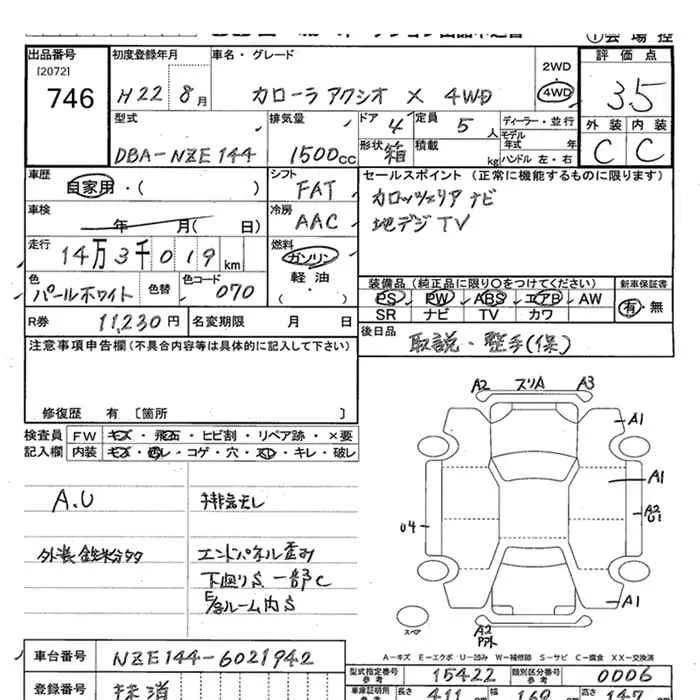 ①会場控
出品番号
[2072]
746
初度登録年月
H22 8月
車名・グレード
カローラ アクシオ X 4WD
2WD
4WD
評価点
3.5
外装 内装
C C
型式
DBA-NZE144
排気量
1500cc
ドア 4
形状 箱
定員 5人
積載 kg
ディーラー・並行
モデル年式 年
ハンドル 左・右
車歴
自家用・( )
シフト
FAT
セールスポイント (正常に機能するものに限ります)
カロッツェリア ナビ
地デジ TV
車検
年 月( 日)
冷房
AAC
走行
14万3千019km
燃料
ガソリン
軽油
・
( )
色
パールホワイト
色替
色コード
070
装備品 (純正品に限り○をつけてください)
PS PW ABS エアB AW
SR ナビ TV カワ
新車保証書
有・無
R券 11,230円
名変期限 月 日
後日品 取説・整手(保)
注意事項申告欄(不具合内容等は具体的に記入して下さい)
修復歴 有 〔箇所 〕
検査員 FW キズ・飛石・ヒビ割・リペア跡・×要
記入欄 内装 キズ・汚レ・コゲ・穴・スレ・キレ・破レ
A.U
排気モレ
外装 鉄粉タタ
エンドパネル歪み
下廻りS 一部C
E/gルーム内S
A2 スリA A3
A1
A1
A2
U1
U4
A1
A2
スペア
A-キズ E-エクボ U-凹み W-補修跡 S-サビ C-腐食 XX-交換済
車台番号 NZE144-6021942
登録番号 抹消
型式指定番号
参考
15422
類別区分番号
参考
0006
車庫証明用
参考
長さ 441 cm
幅 169 cm
高さ 147 cm